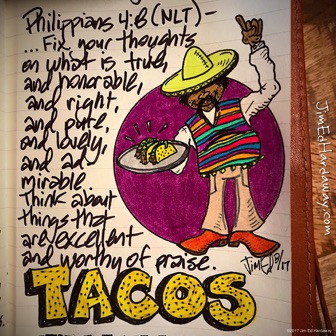 Philippians 4:8 (NLT) -
... Fix your thoughts
on what is true,
and honorable,
and right,
and pure,
and lovely,
and ad
mirable.
Think about
things that
are excellent
and worthy of praise.
TACOS
JimEd 8/17
JimEdHardaway.com
©2017 Jim Ed Hardaway